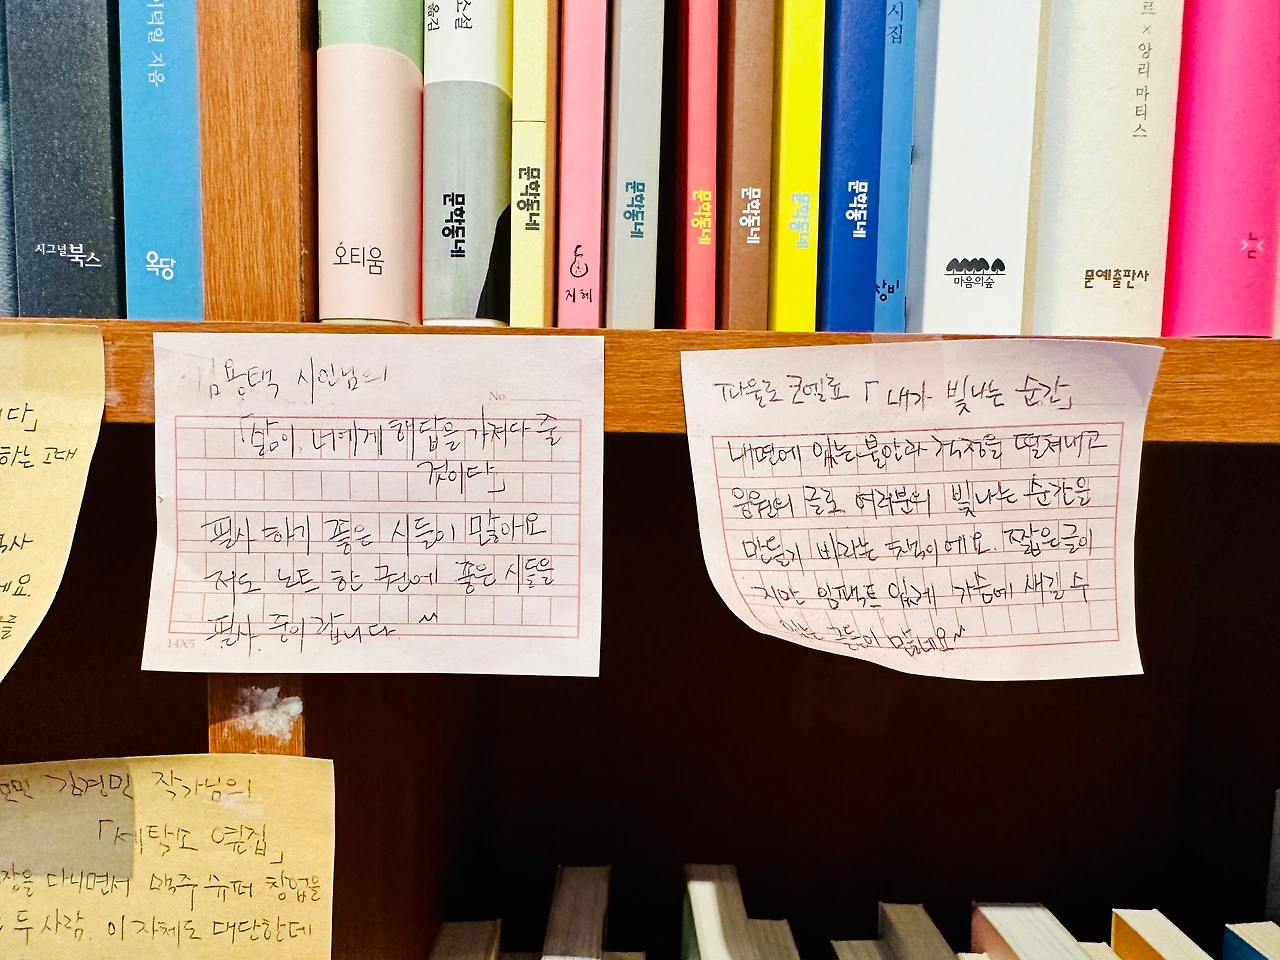 이덕일 지음
소설
옮김
시집
르×앙리 마티스
시그널북스
옥당
오티움
문학동네
문학동네
지혜
문학동네
문학동네
문학동네
문학동네
문학동네
창비
마음의숲
문예출판사
난
다」
하는 고대
독사
네요.
를
김용택 시인님의
No.
「삶이 너에게 해답을 가져다 줄
것이다」
필사 하기 좋은 시들이 많아요
저도 노트 한 권에 좋은 시들을
필사 중이랍니다
14X5
파울로 코엘료 「내가 빛나는 순간」
내면에 있는 불안과 걱정을 떨쳐내고
응원의 글로 여러분의 빛나는 순간을
만들기 바라는 책이에요. 짧은글이
지만 임팩트 있게 가슴에 새길 수
있는 글들이 많네요
김경민 작가님의
「세탁소 옆집」
장을 다니면서 맥주 슈퍼 창업을
두 사람. 이 자체도 대단한데